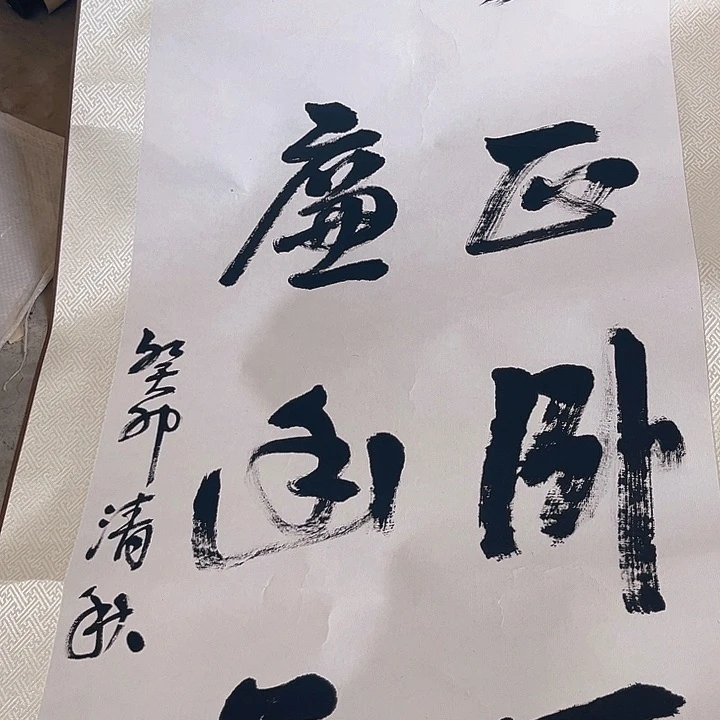 正卧
廉幽
癸卯清秋